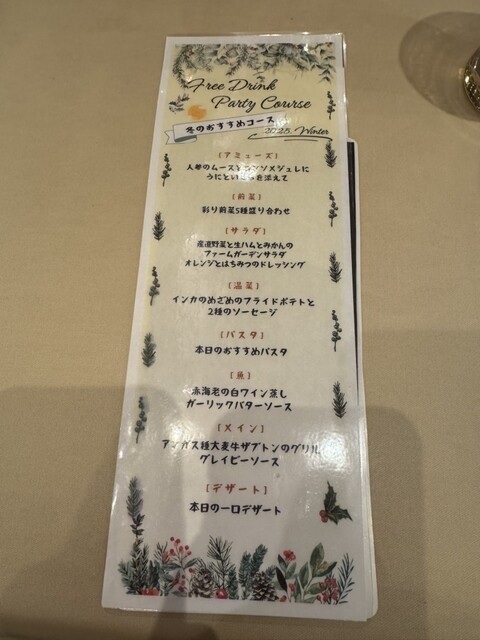 Free Drink
Party Course
冬のおすすめコース
2025. Winter
[アミューズ]
人参のムースとコンソメジュレに
うにといくらを添えて
[前菜]
彩り前菜5種盛り合わせ
[サラダ]
産直野菜と生ハムとみかんの
ファームガーデンサラダ
オレンジとはちみつのドレッシング
[温菜]
インカのめざめのフライドポテトと
2種のソーセージ
[パスタ]
本日のおすすめパスタ
[魚]
赤海老の白ワイン蒸し
ガーリックバターソース
[メイン]
アンガス種大麦牛ザブトンのグリル
グレイビーソース
[デザート]
本日の一口デザート